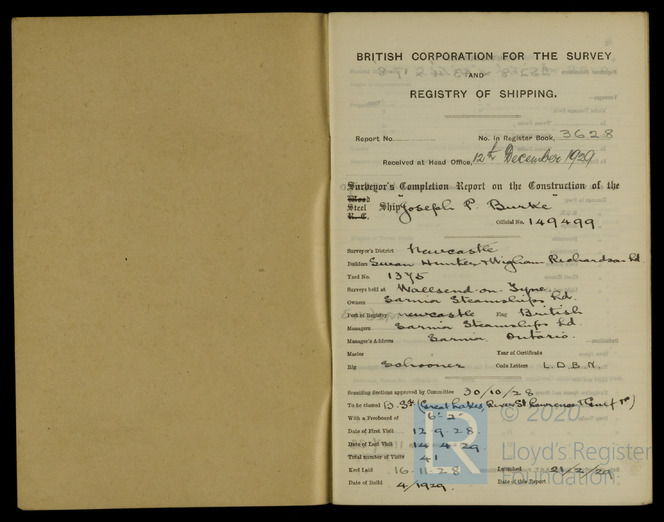 BRITISH CORPORATION FOR THE SURVEY
AND
REGISTRY OF SHIPPING.
Report No. No. in Register Book, 3628
Received at Head Office, 12th December 1929
Surveyor's Completion Report on the Construction of the
Wood
Steel Ship "Joseph P. Burke"
R. C.
Official No. 149499
Surveyor's District Newcastle
Builders Swan Hunter & Wigham Richardson Ld
Yard No. 1375
Surveys held at Wallsend on Tyne
Owners Sarnia Steamships Ld.
Port of Registry Newcastle Flag British
Managers Sarnia Steamships Ld
Manager's Address Sarnia Ontario.
Master Year of Certificate
Rig Schooner Code Letters L.D.B.N.
Scantling Sections approved by Committee 30/10/28
To be classed (Great Lakes, River St Lawrence & Gulf
With a Freeboard of 6'-2"
Date of First Visit 12.9.28.
Date of Last Visit 14.4.29
Total number of Visits 41
Keel Laid 16.11.28 Launched 21/2/29
Date of Build 4/1929. Date of this Report
© 2020
LR
Lloyd's Register
Foundation